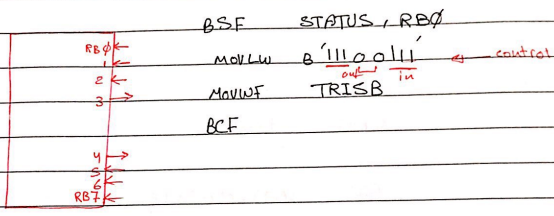 BSF STATUS, RBØ
RBØ
1 MOVLW B'11100111' control
out in
2
3 MOVWF TRISB
BCF
4
5
6
RB7